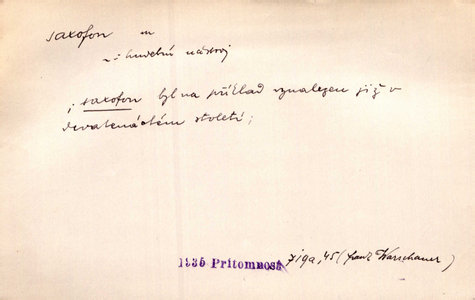 saxofon m
~: hudební nástroj
; saxofon byl na příklad vynalezen již v
devatenáctém století;
1935 Přítomnost, 45 (Frank Warschauer)